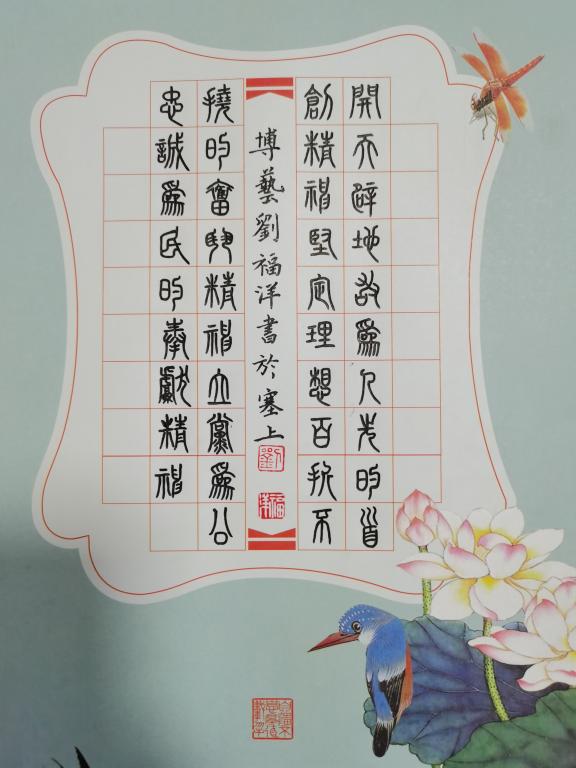 開天辟地敢爲人先的首
創精神堅定理想百折不
撓的奮鬥精神立黨爲公
忠誠爲民的奉獻精神
博藝劉福洋書於塞上
劉